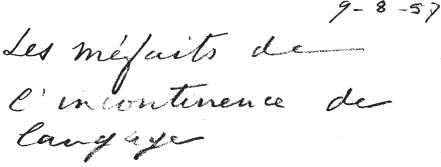 9-8-57
Les méfaits de
l'incontinence de
langage